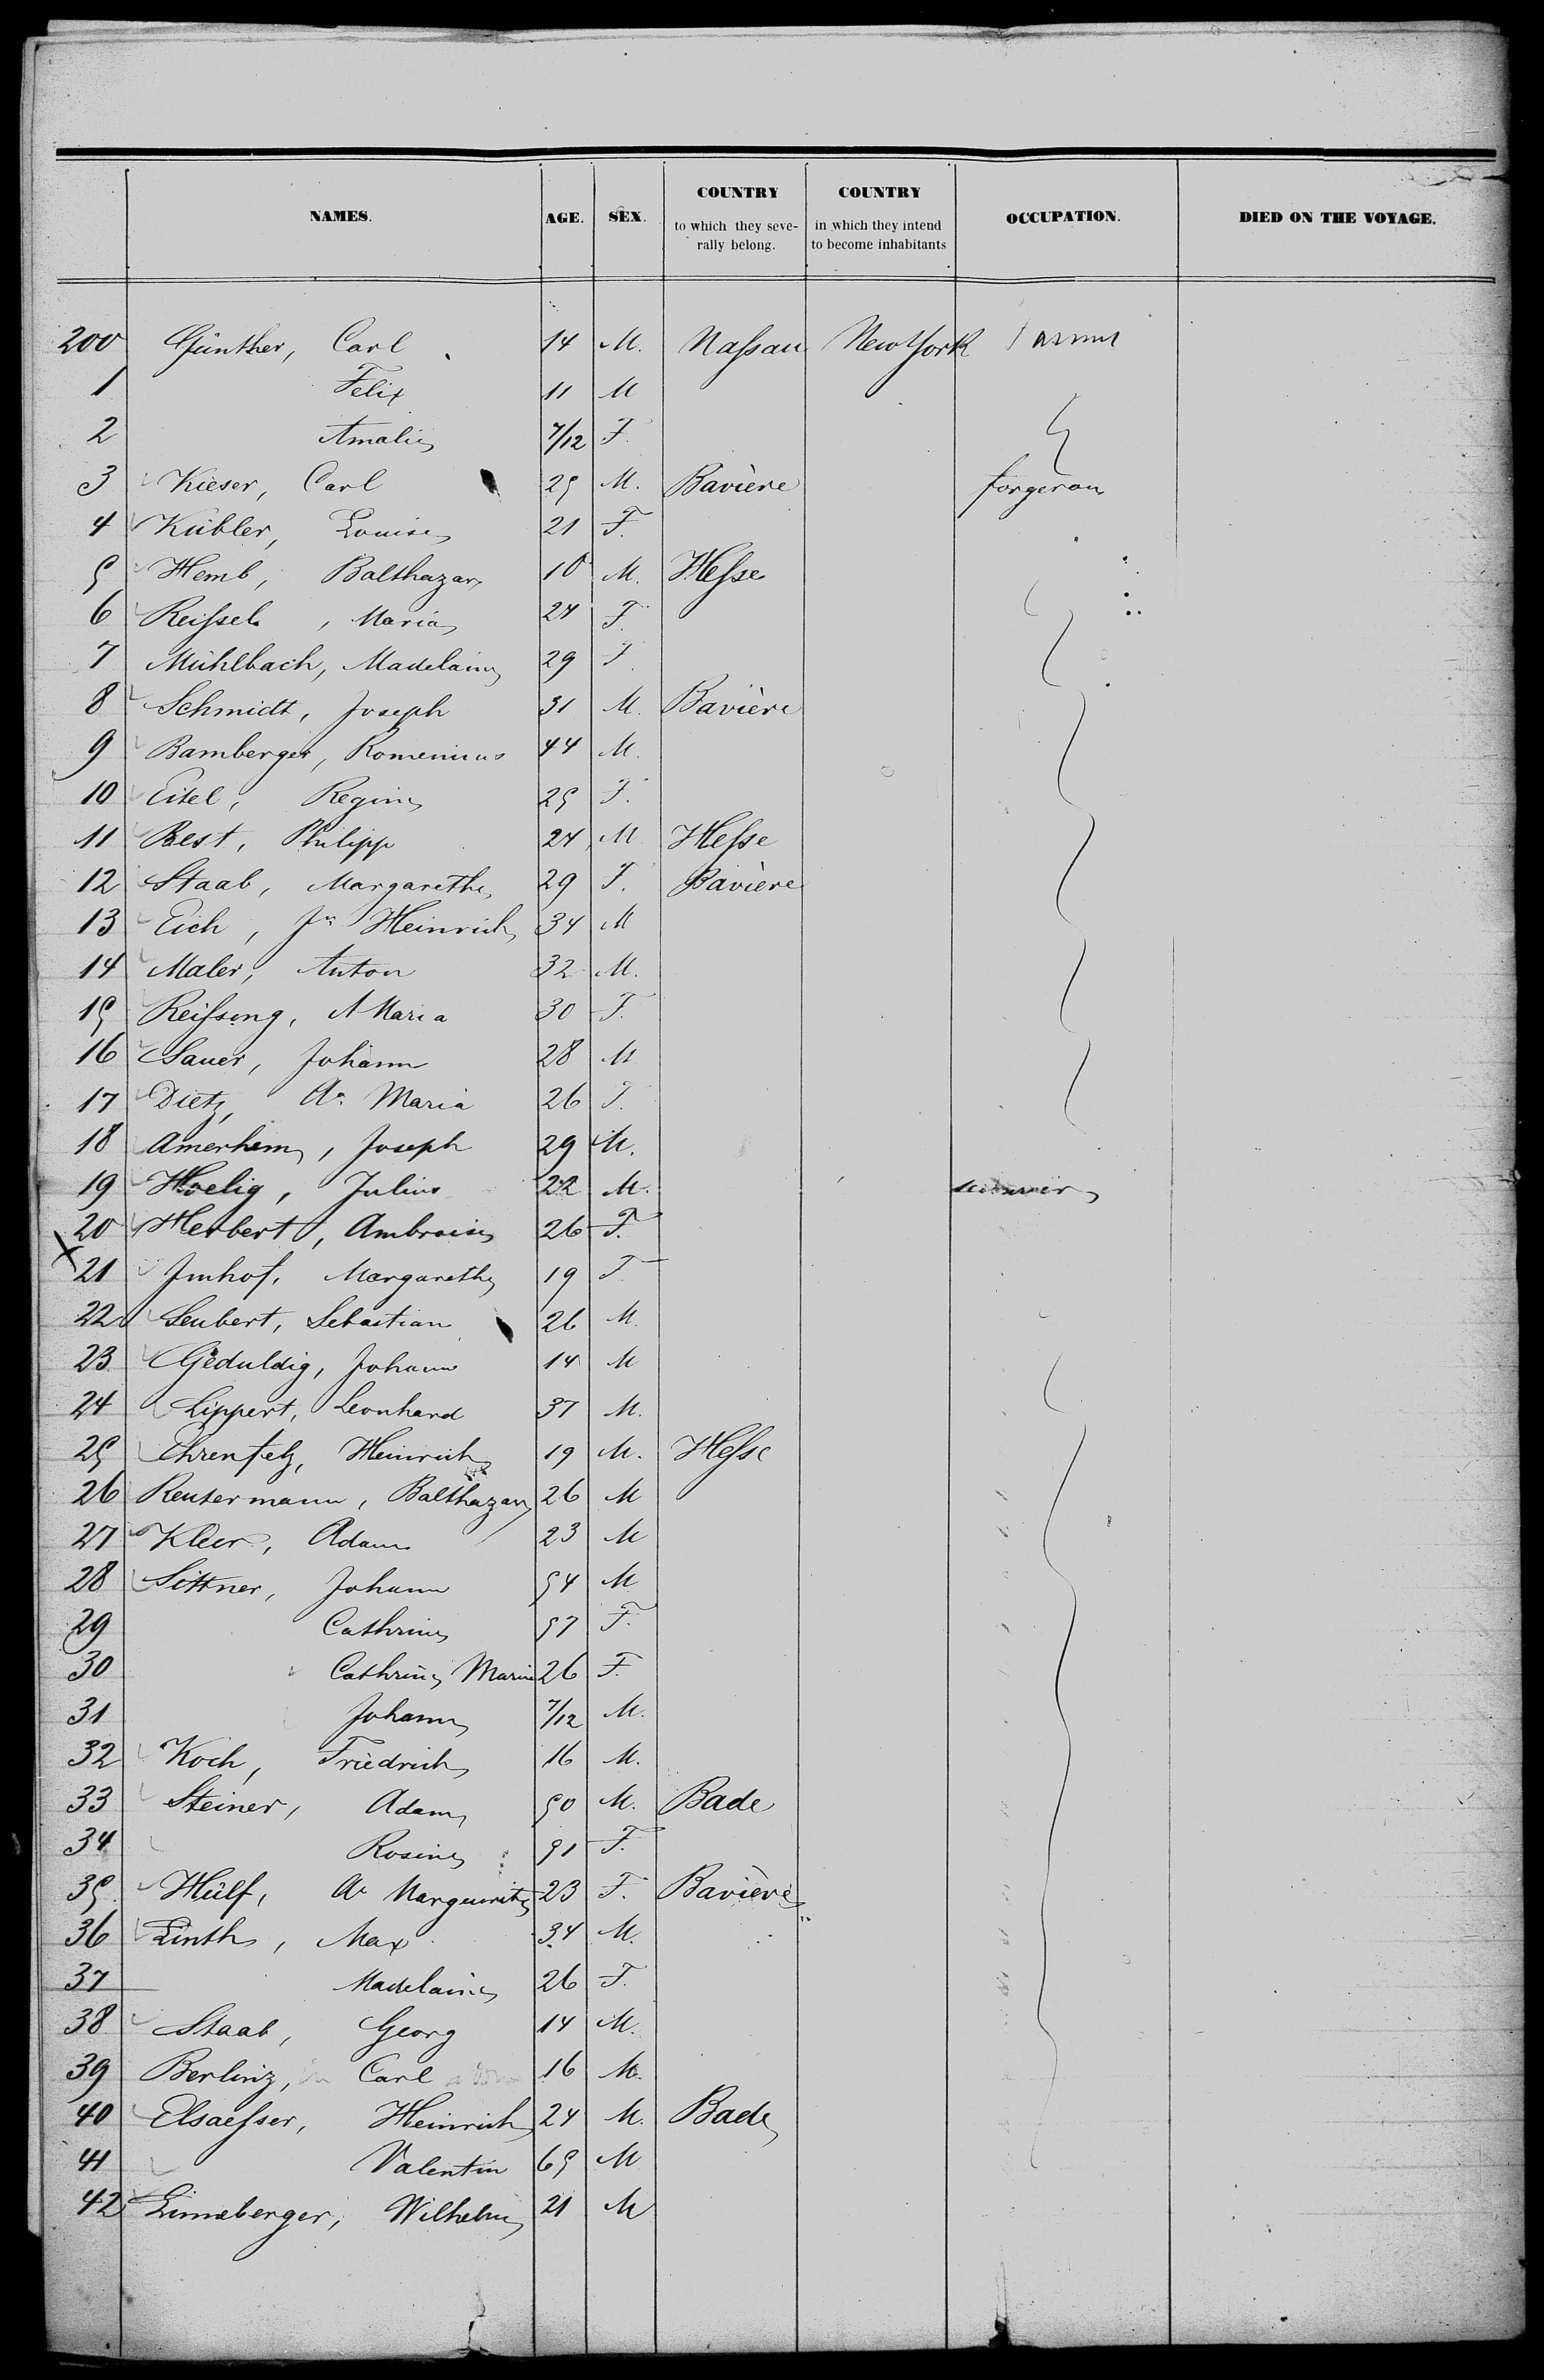 NAMES. AGE. SEX. COUNTRY to which they severally belong. COUNTRY in which they intend to become inhabitants OCCUPATION. DIED ON THE VOYAGE.
200 Günther, Carl 14 M. Nassau NewYork
1 Felix 11 M
2 Amalie 7/12 F.
3 Kieser, Carl 25 M. Bavière forgeron
4 Kübler, Louise 21 F.
5 Hemb, Balthazar 10 M. Hesse
6 Reissel, Maria 24 F.
7 Mühlbach, Madelaine 29 F.
8 Schmidt, Joseph 31 M. Bavière
9 Bamberger, 44 M.
10 Eitel, Regine 25 F.
11 Best, Philipp 24 M Hesse
12 Staab, Margarethe 29 F. Bavière
13 Eich, Jn Heinrich 34 M
14 Maler, Anton 32 M.
15 Reissing, A Maria 30 F.
16 Sauer, Johann 28 M
17 Dietz, Aa Maria 26 F.
18 Amerhem, Joseph 29 M.
19 Hoelig, Julius 22 M.
X 20 Herbert, Ambroise 26 F.
21 Imhof, Margarethe 19 F
22 Seubert, Sebastian 26 M.
23 Geduldig, Johann 14 M
24 Lippert, Leonhard 37 M.
25 Ehrenfelz, Heinrich 19 M. Hesse
26 Reutermann, Balthazar 26 M
27 Kleer, Adam 23 M
28 Sittner, Johann 54 M
29 Cathrine 57 F.
30 Cathrine Marie 26 F.
31 Johann 7/12 M.
32 Koch, Friedrich 16 M.
33 Steiner, Adam 50 M. Bade
34 Rosine 51 F.
35 Hülf, Aa Marguerite 23 F. Bavière
36 Linth, Max 34 M.
37 Madelaine 26 F.
38 Staab, Georg 14 M.
39 Berlinz, Carl 16 M.
40 Elsaesser, Heinrich 24 M. Bade
41 Valentin 65 M
42 Linneberger, Wilhelm 21 M